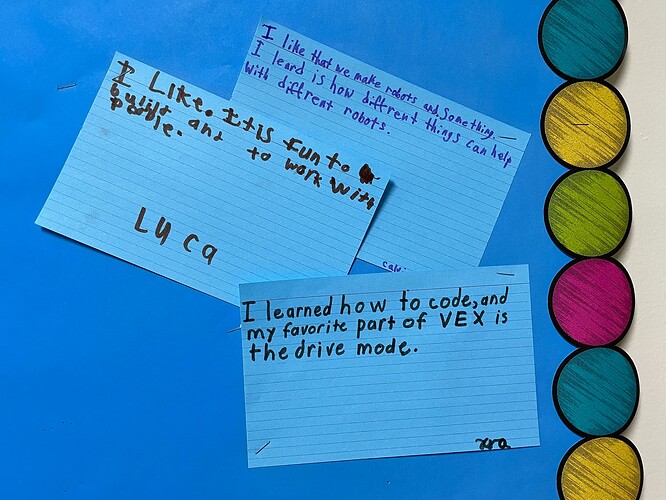 I like that we make robots and something
I leard is how diffrent things can help
with diffrent robots.
I Like. It is fun to
built and to work with
people.
Luca
I learned how to code, and
my favorite part of VEX is
the drive mode.